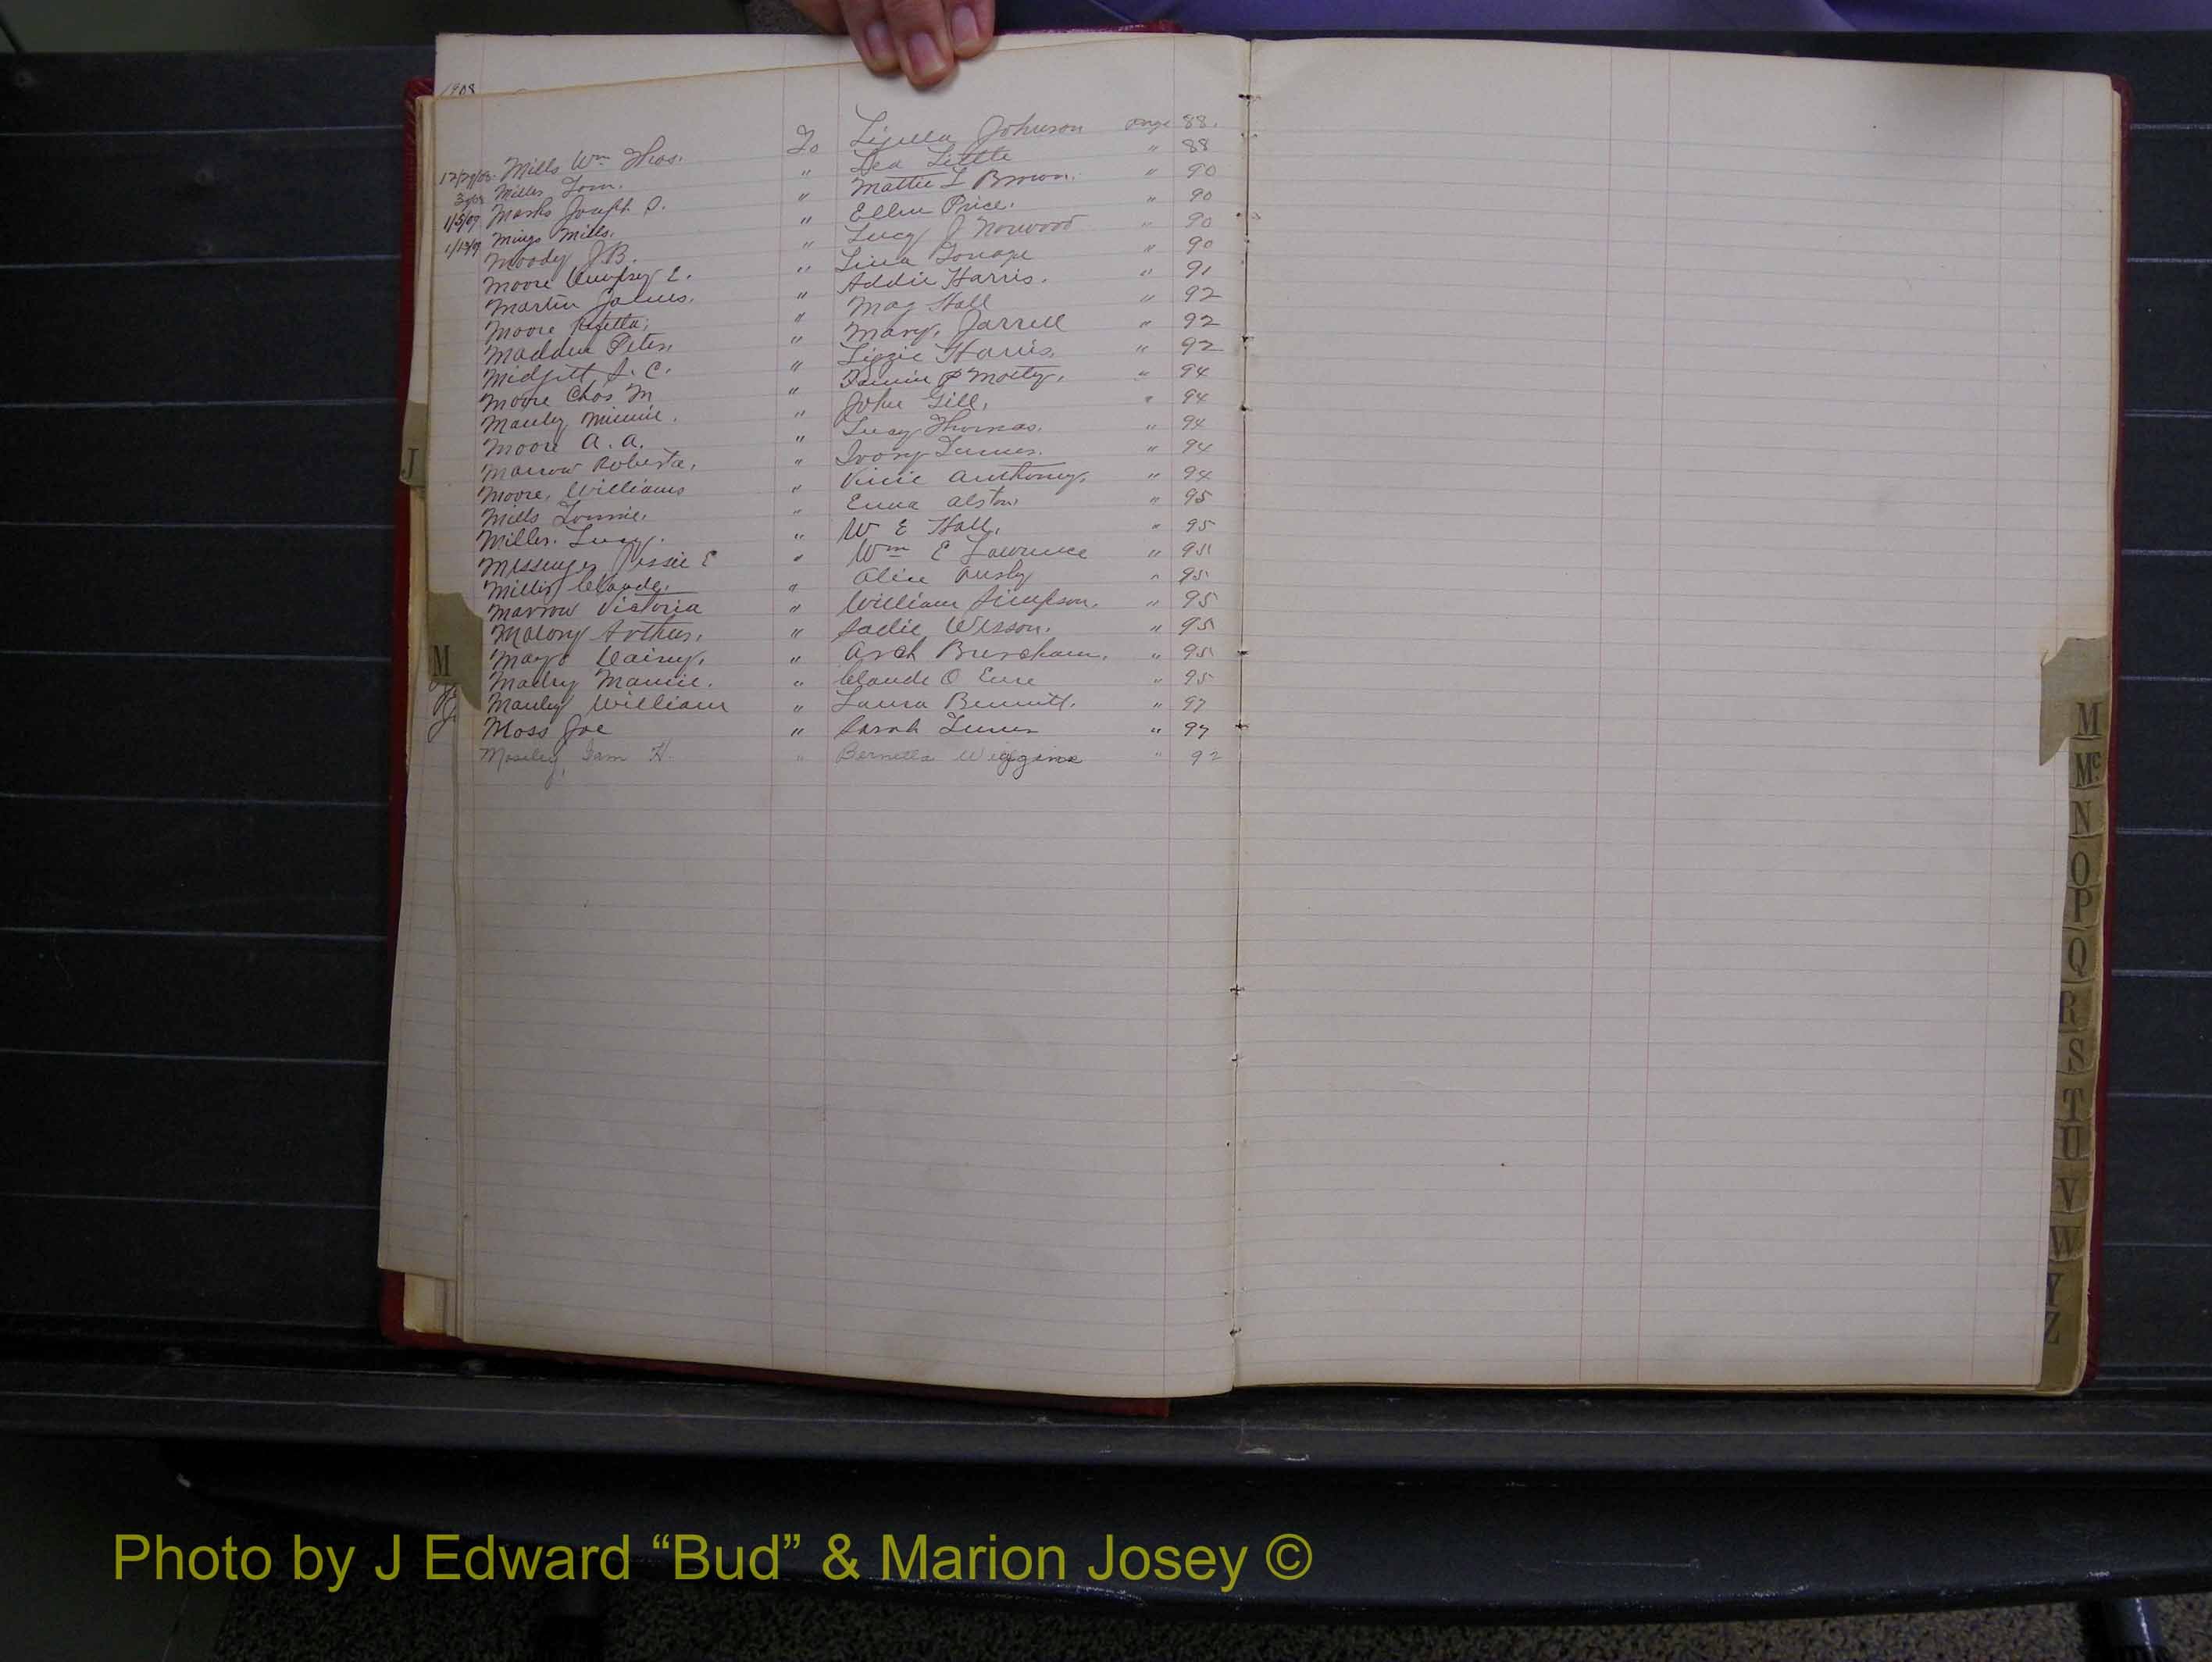 1908
12/29/08 Mills Wm Thos. To Lizella Johnson page 88.
Mills Tom. " Lea Little " 88
1/5/09 Marks Joseph P. " Mattie L Brown. " 90
1/13/09 Mingo Mills. " Ellen Price. " 90
Moody J.B. " Lucy J Norwood " 90
Moore E. " Lina " 90
Martin James. " Addie Harris. " 91
Moore " May Hall " 92
Madden Peter, " Mary, Jarrell " 92
Midgett S. C. " Lizzie Harris. " 92
Moore Chas M " " 94
Manley Minnie. " John Gill, " 94
Moore A. A. " Lucy Thomas. " 94
Marrow Roberta, " Ivory Turner. " 94
Moore, Williams " Vicie Anthony. " 94
Mills Lonnie. " Emma Alston " 95
Miller. Lucy. " W E Hall. " 95
Messenger Jessie E " Wm E Lawrence " 95
Miller Claude. " Alice Ausby " 95
Marrow Victoria " William Simpson. " 95
Malory Arthur. " Sadie Wesson. " 95
Mayo Daisy. " Arch Burcham. " 95
Mamie. " Claude O Eure " 95
Manley William " Laura Bennett. " 97
Moss Joe " Sarah Turner " 97
Moseley, Sam H. " Bernetta Wiggins " 92
J
M
M
Mc.
N
O
P
Q
R
S
T
U
V
W
Y
Z
Photo by J Edward “Bud” & Marion Josey ©